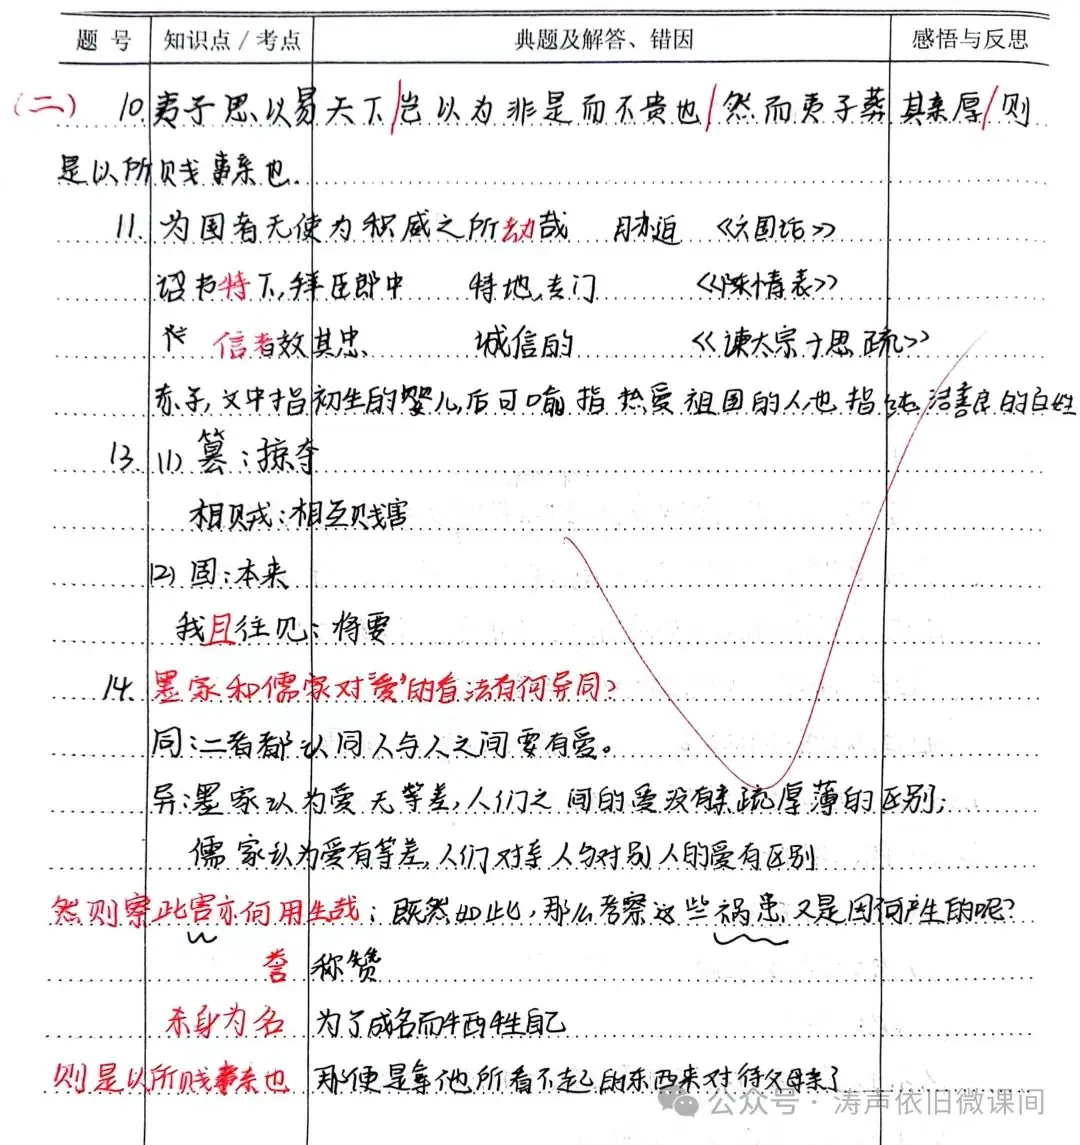 题 号 知识点/考点 典题及解答、错因 感悟与反思
(二) 10. 夷子思以易天下/岂以为非是而不贵也/然而夷子葬其亲厚/则
是以所贱事亲也.
11. 为国者无使为积威之所劫哉 胁迫 《六国论》
诏书特下,拜臣郎中 特地,专门 《陈情表》
信者效其忠 诚信的 《谏太宗十思疏》
赤子,文中指初生的婴儿,后可喻指热爱祖国的人也指纯洁善良的百姓
13. (1) 篡:掠夺
相贼:相互贱害
(2) 固:本来
我且往见:将要
14. 墨家和儒家对"爱"的看法有何异同?
同:二者都认同人与人之间要有爱。
异:墨家认为爱无等差,人们之间的爱没有亲疏厚薄的区别;
儒家认为爱有等差,人们对亲人与对别人的爱有区别
然则察此害亦何用生哉:既然如此,那么考察这些祸患又是因何产生的呢?
誉 称赞
杀身为名 为了成名而牺牲自己
则是以所贱事亲也 那便是拿他所看不起的东西来对待父母亲了
公众号·涛声依旧微课间